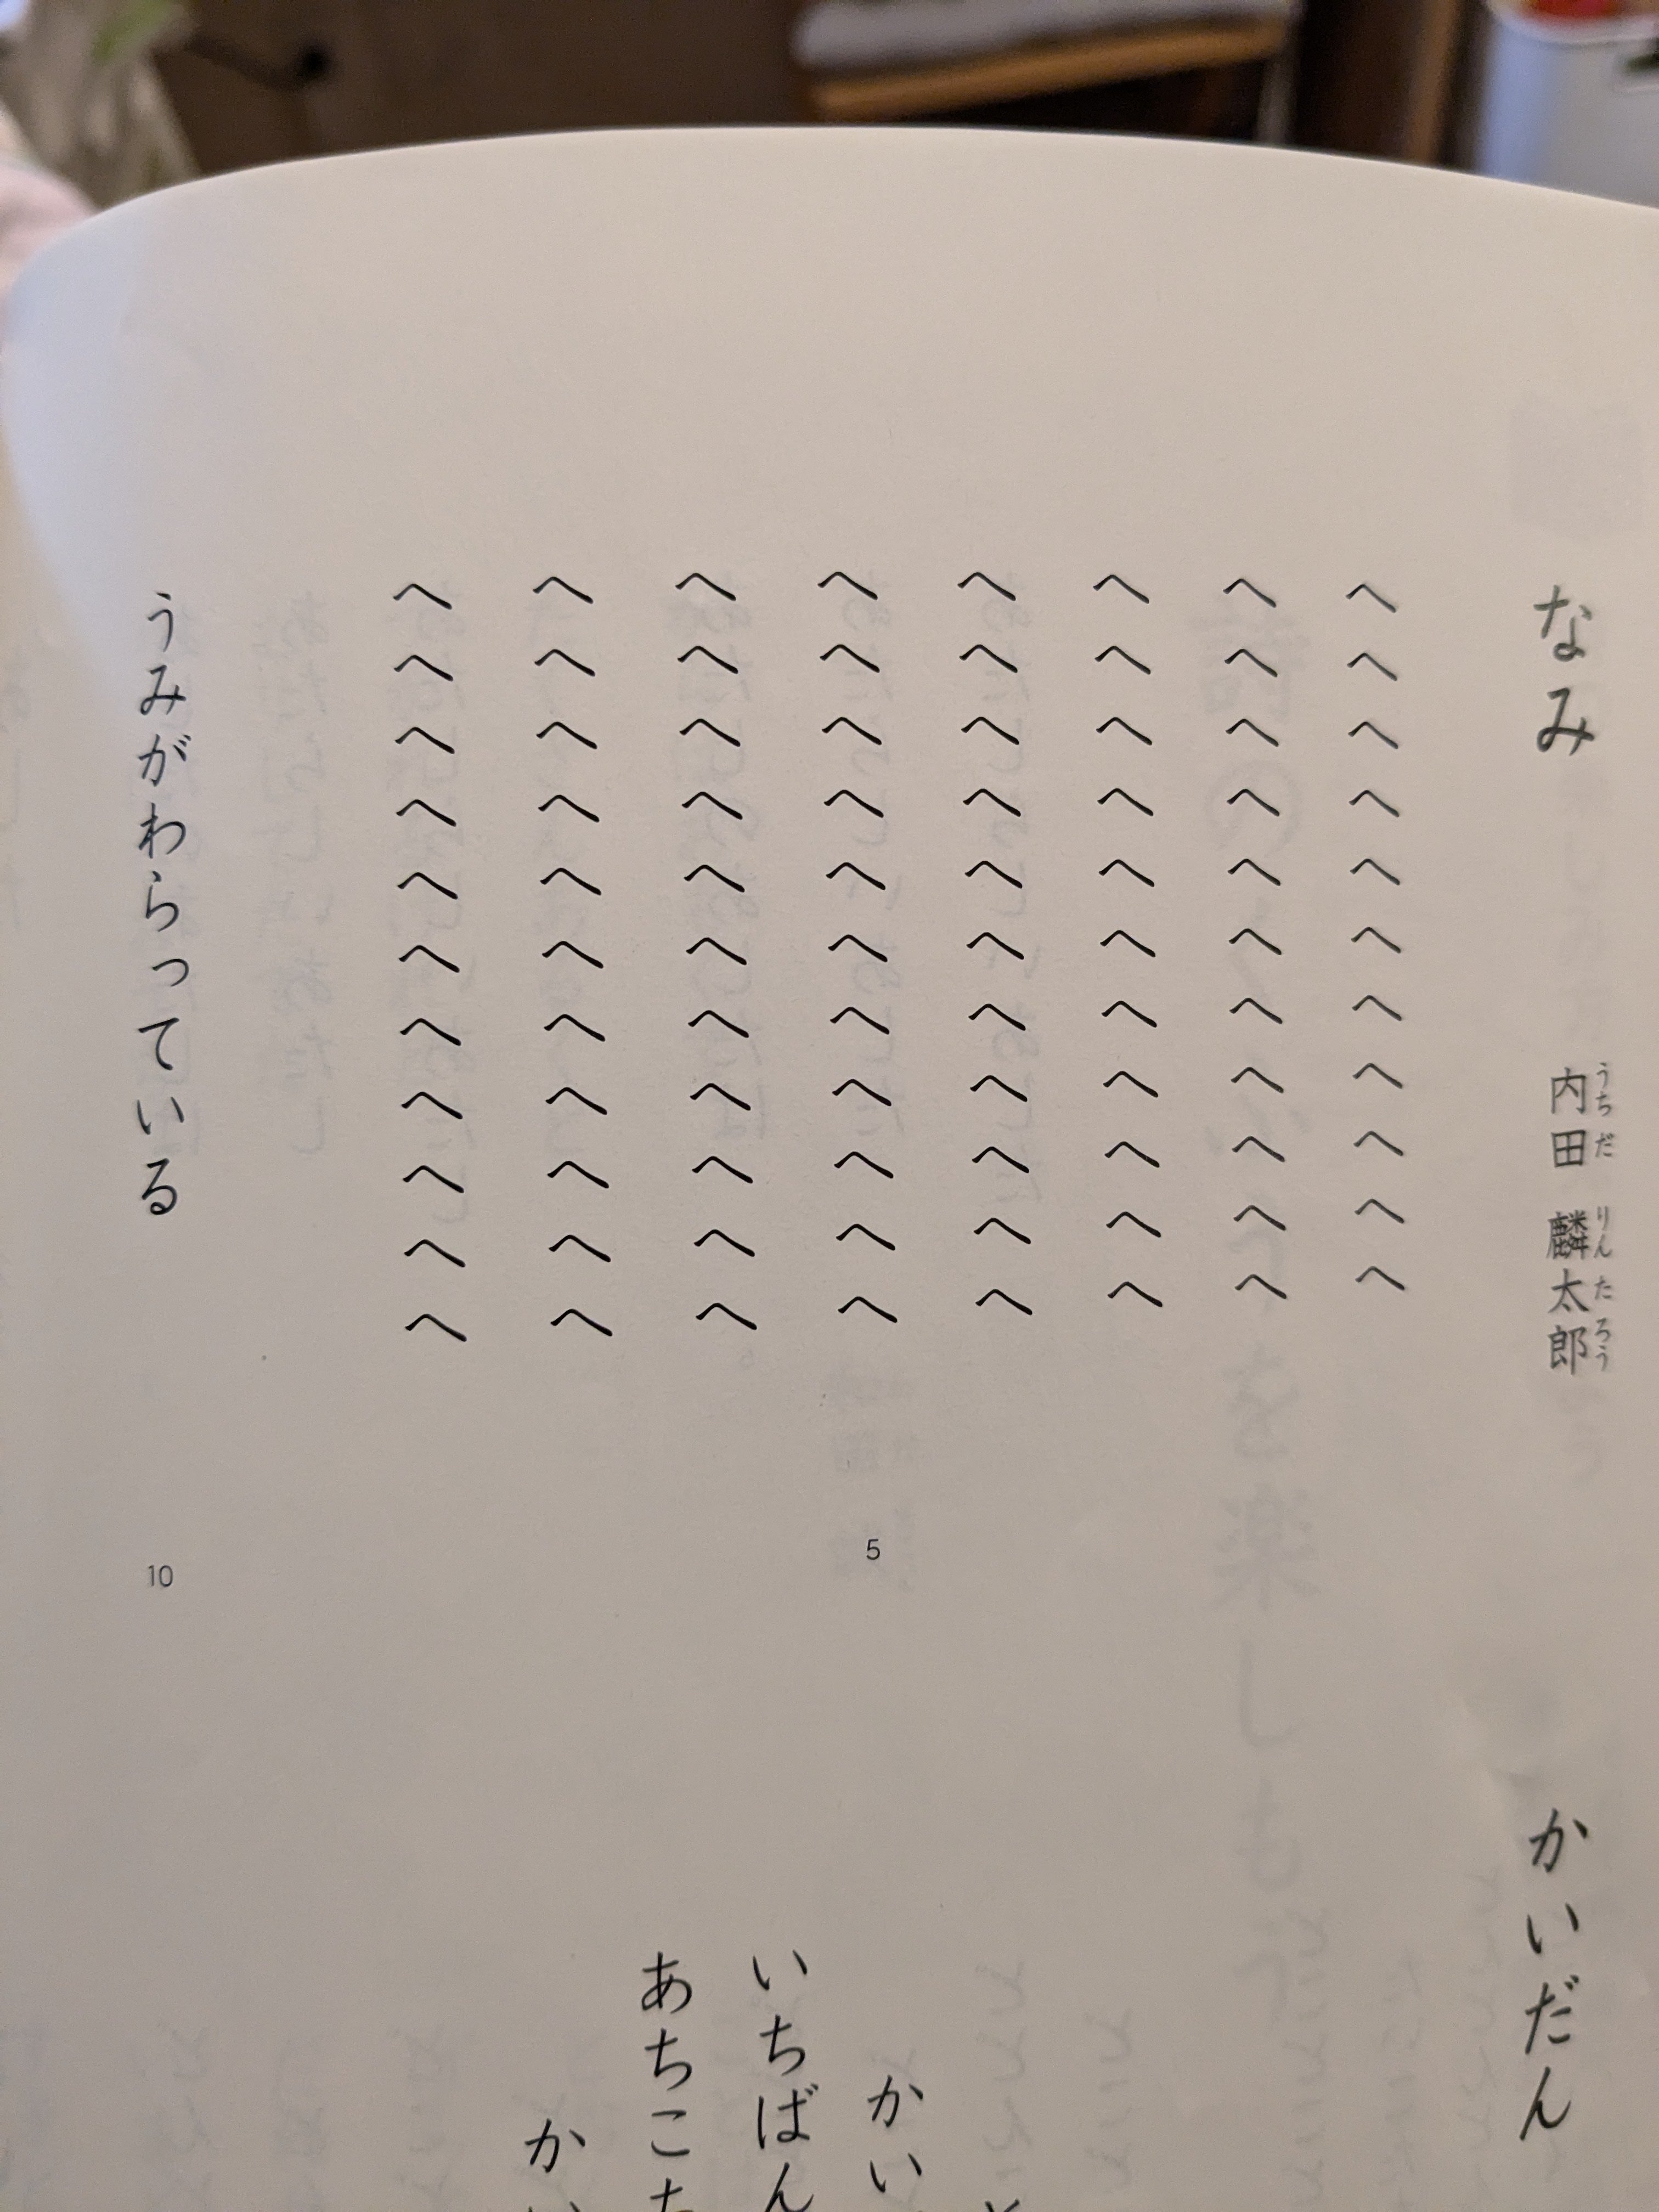 なみ
内田 麟太郎
うちだ りんたろう
へへへへへへへへへへへ
へへへへへへへへへへへ
へへへへへへへへへへへ
へへへへへへへへへへへ
へへへへへへへへへへへ
へへへへへへへへへへへ
へへへへへへへへへへへ
へへへへへへへへへへへ
うみがわらっている
5
10
かいだん
かい
いちばん
あちこ
か